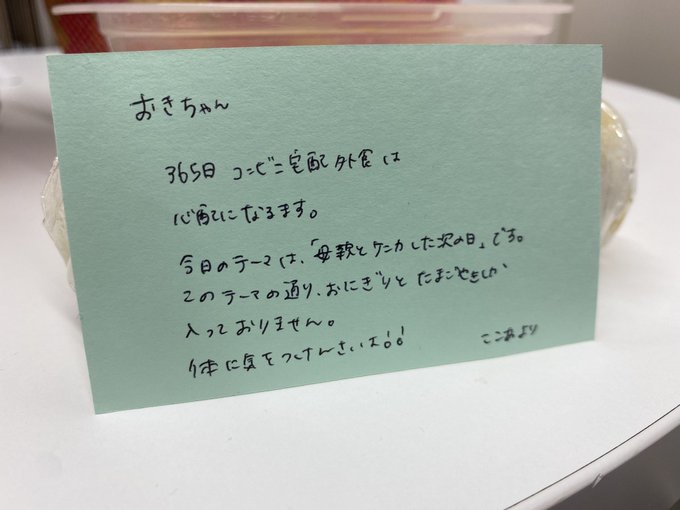 おきちゃん
365日 コンビニ宅配外食は
心配になるます。
今日のテーマは、「母親とケンカした次の日」です。
このテーマの通り、おにぎりと たまごやきしか
入っておりません。
体に気をつけんさいよ!!
ここあより